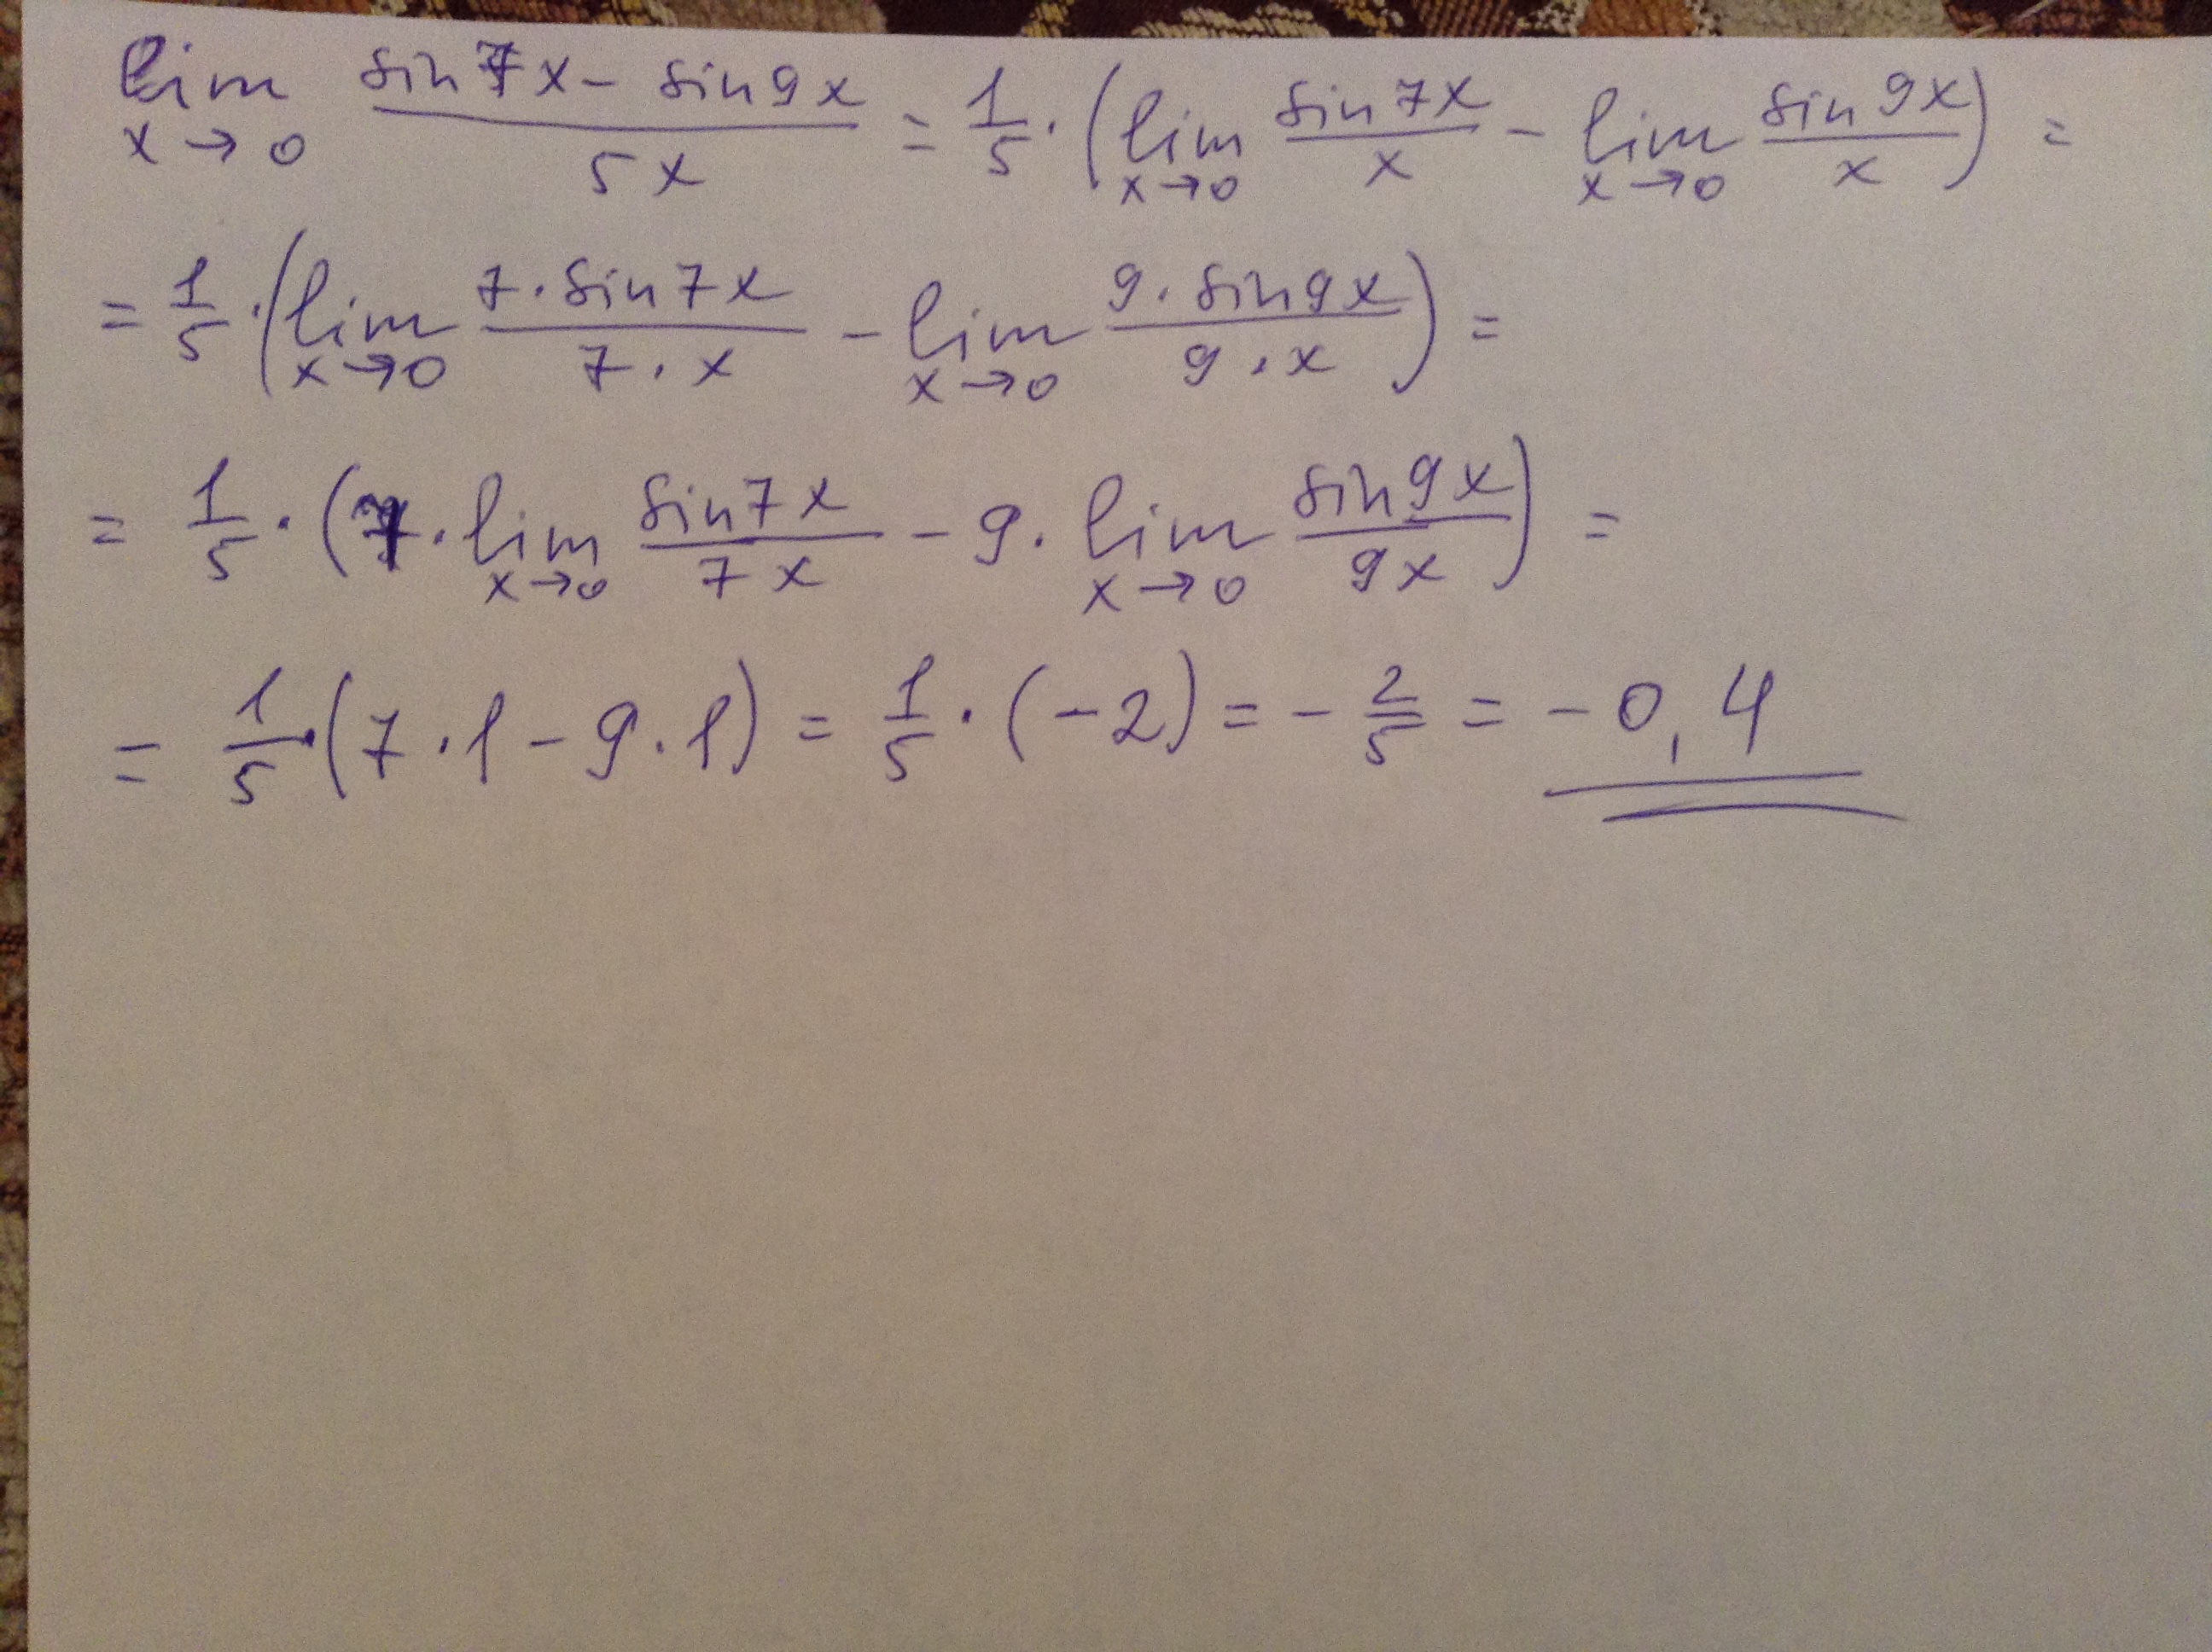 lim x→0 (sin7x − sin9x)/(5x) = 1/5 · (lim x→0 sin7x/x − lim x→0 sin9x/x) =
= 1/5 · (lim x→0 (7·sin7x)/(7·x) − lim x→0 (9·sin9x)/(9·x)) =
= 1/5 · (7 · lim x→0 sin7x/7x − 9 · lim x→0 sin9x/9x) =
= 1/5 · (7·1 − 9·1) = 1/5 · (−2) = − 2/5 = −0,4